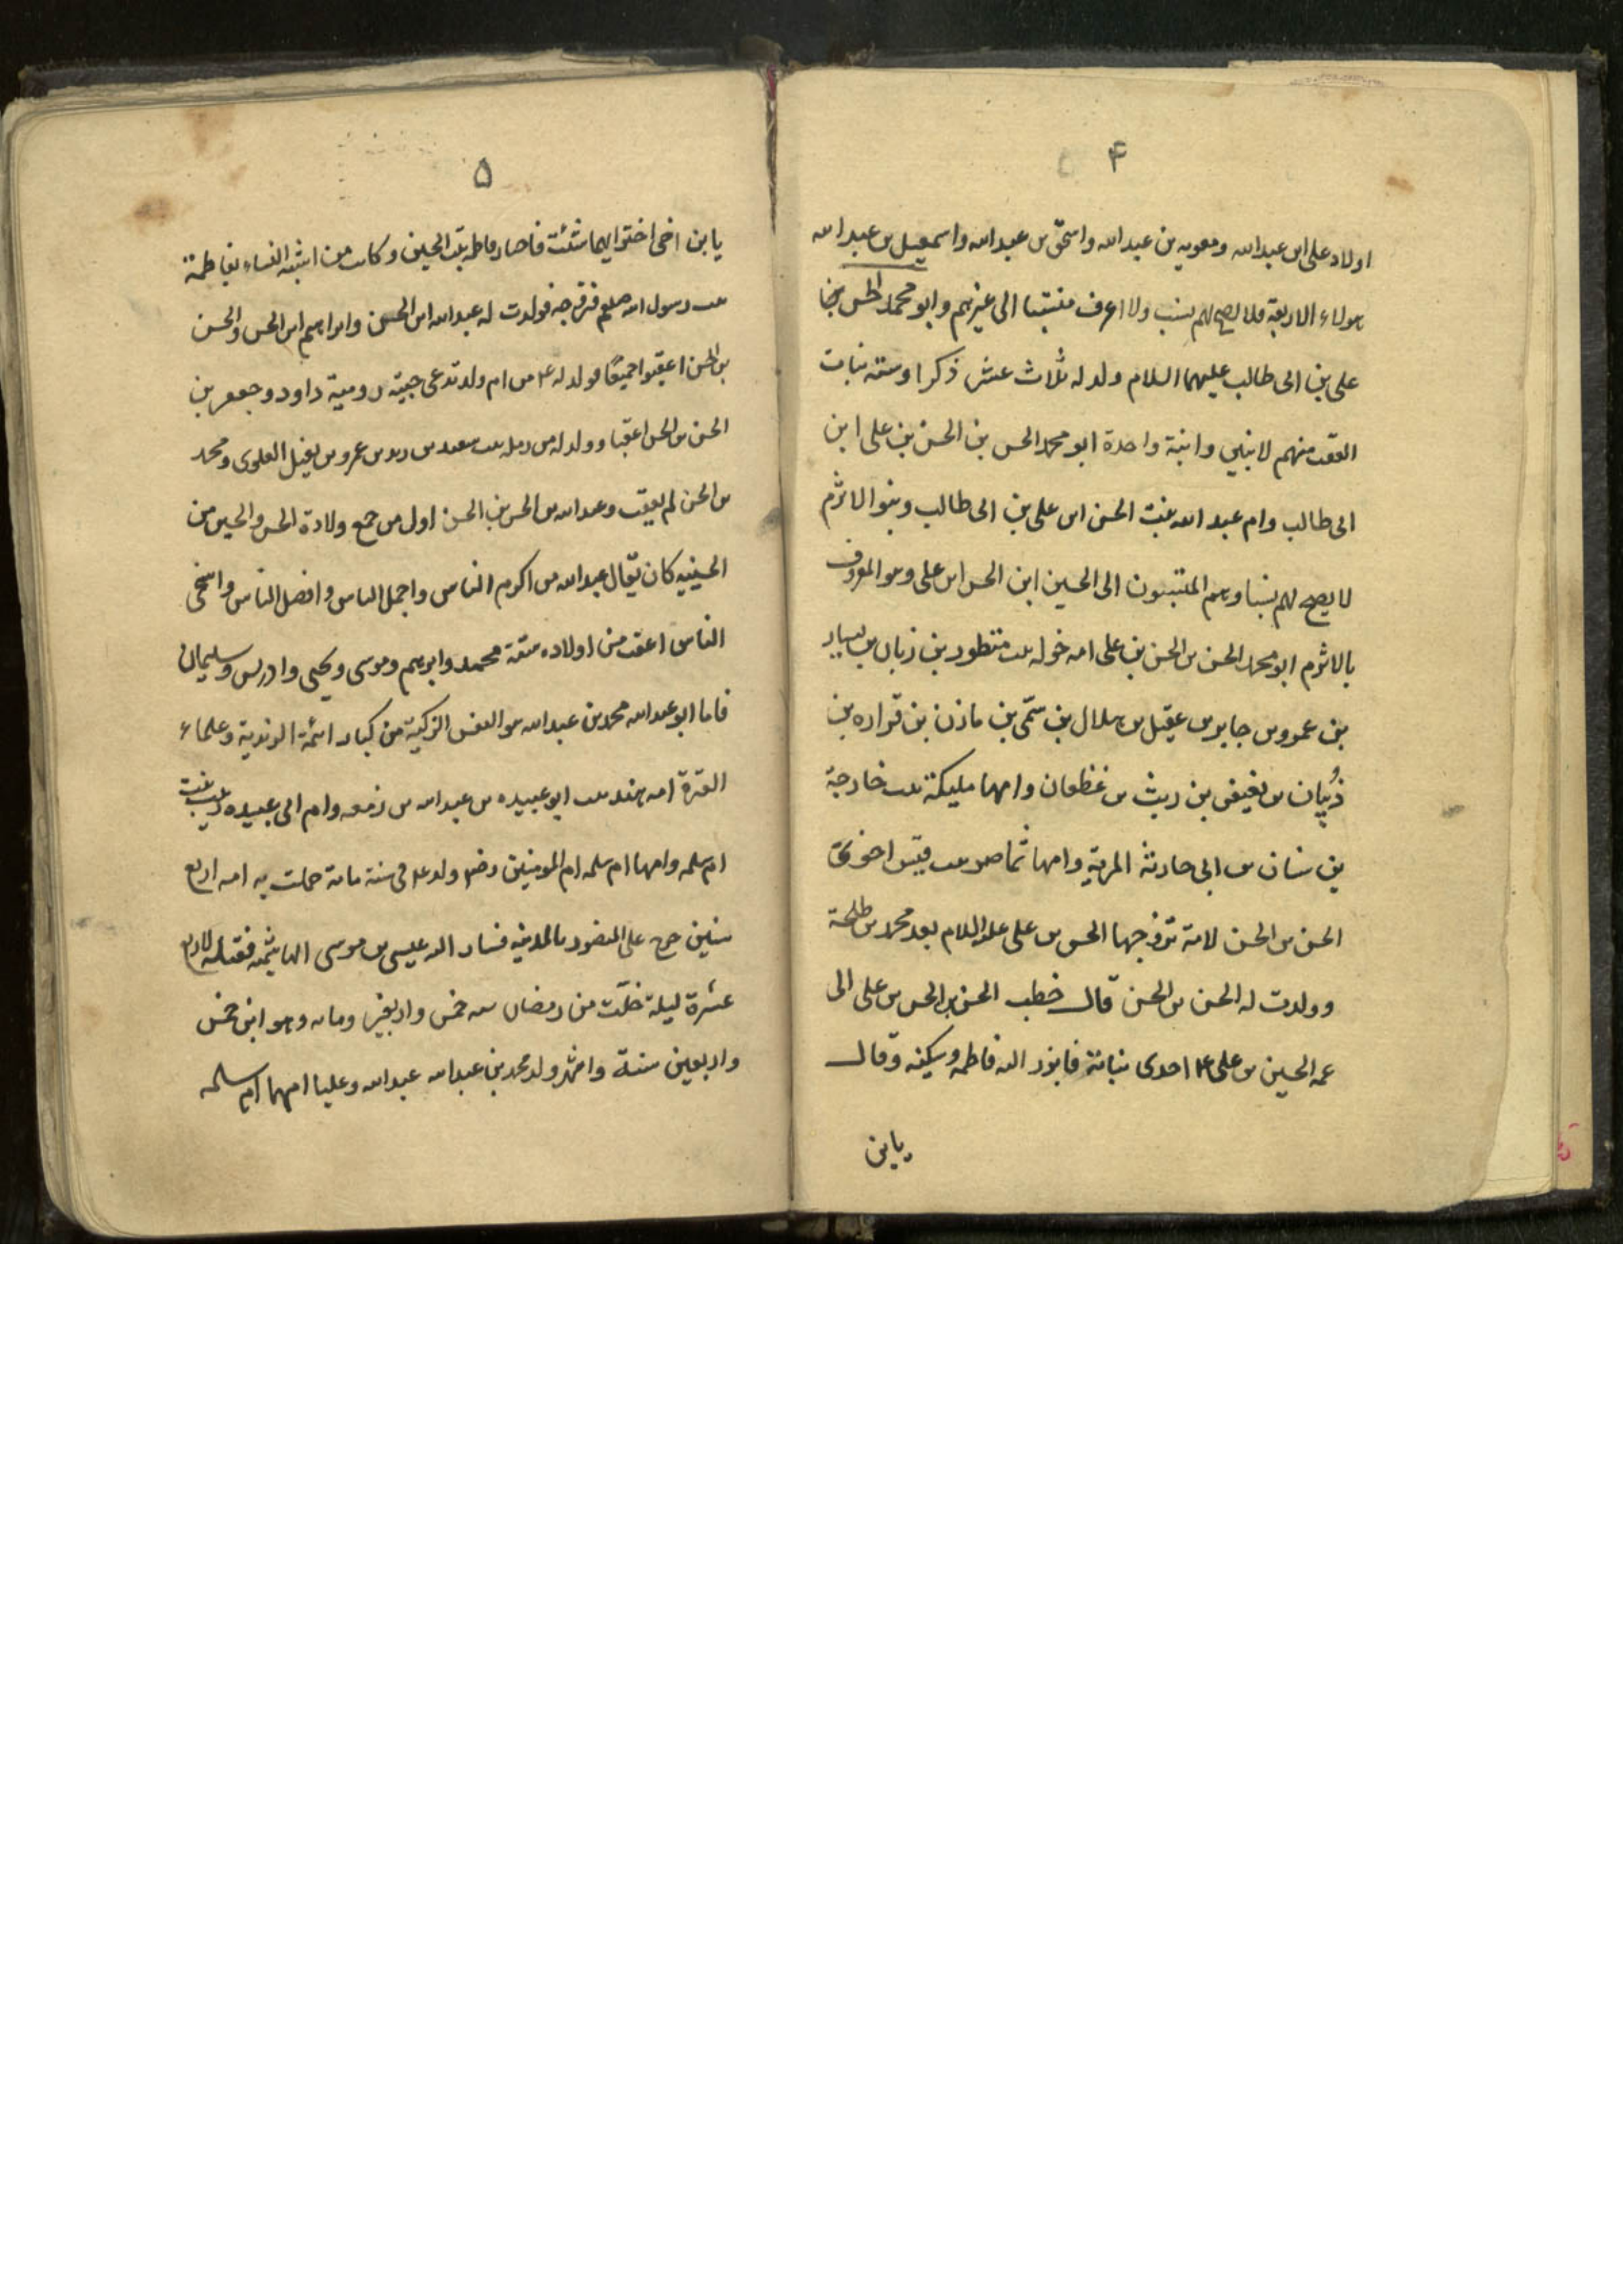 ۴
اولاد علی ابن عبدالله ومعویه بن عبدالله واسحق بن عبدالله واسمعیل بن عبدالله
هولاء الاربعة فلا یصح لهم نسب ولا اعرف منتسبا الی غیرهم وابو محمد الحسن بن
علی بن ابی طالب علیهما السلام ولد له ثلاث عشر ذکرا وسته بنات
العقب منهم لابنین وابنة واحدة ابو محمد الحسن بن الحسن بن علی ابن
ابی طالب وام عبد الله بنت الحسن ابن علی بن ابی طالب وبنو الاثرم
لا یصح لهم نسبا وهم المنتسبون الی الحسین ابن الحسن ابن علی وهو المعروف
بالاثرم ابو محمد الحسن بن الحسن بن علی امه خوله بنت منظور بن زبان بن یسار
بن عمرو بن جابر بن عقیل بن هلال بن سمّی بن مازن بن فزاره بن
ذُبیان بن بغیض بن ریث بن غطفان وامها ملیکة بنت خارجة
بن سنان بن ابی حارثة المریة وامها تماضر بنت قیس اخو
الحسن بن الحسن لامة تزوجها الحسن بن علی علیه السلام بعد محمد بن طلحة
وولدت له الحسن بن الحسن قال خطب الحسن بن الحسن بن علی الی
عمه الحسین بن علی ع احدی بناته فابرز الیه فاطمه وسکینه وقال
یابن
۵
یابن اخی اختر ایهما شئت فاختار فاطمه بنت الحسین وکانت من اشبه النساء بفاطمة
بنت رسول الله صلعم فزوجه فولدت له عبدالله ابن الحسن وابراهیم ابن الحسن والحسن
بن الحسن اعقبوا جمیعًا وولد له ع من ام ولد تدعی حبیبة رومیة داود وجعفر بن
الحسن بن الحسن اعقبا وولد له من رمله بنت سعید بن زید بن عمرو بن نفیل العدوی ومحمد
بن الحسن لم یعقب وعبدالله بن الحسن بن الحسن اول من جمع ولادة الحسن والحسین من
الحسینیه کان یقال عبدالله من اکرم الناس واجمل الناس وافضل الناس واسخی
الناس اعقب من اولاده ستة محمد وابرهیم وموسی ویحیی وادریس وسلیمان
فاما ابو عبدالله محمد بن عبدالله هو النفس الزکیة من کبار ائمة الزیدیة وعلماء
العترة امه هند بنت ابو عبیده بن عبدالله بن زمعه وام ابی عبیده زینب بنت
ام سلمه وامها ام سلمه ام المومنین رضها ولد ع فی سنة مائة حملت به امه اربع
سنین خرج علی المنصور بالمدینه فسار الیه عیسی بن موسی الهاشمی فقتله لاربع
عشرة لیلة خلت من رمضان سنه خمس واربعین ومائه وهو ابن خمس
واربعین سنة واشهر ولد محمد بن عبدالله عبدالله وعلیا امهما ام سلمه